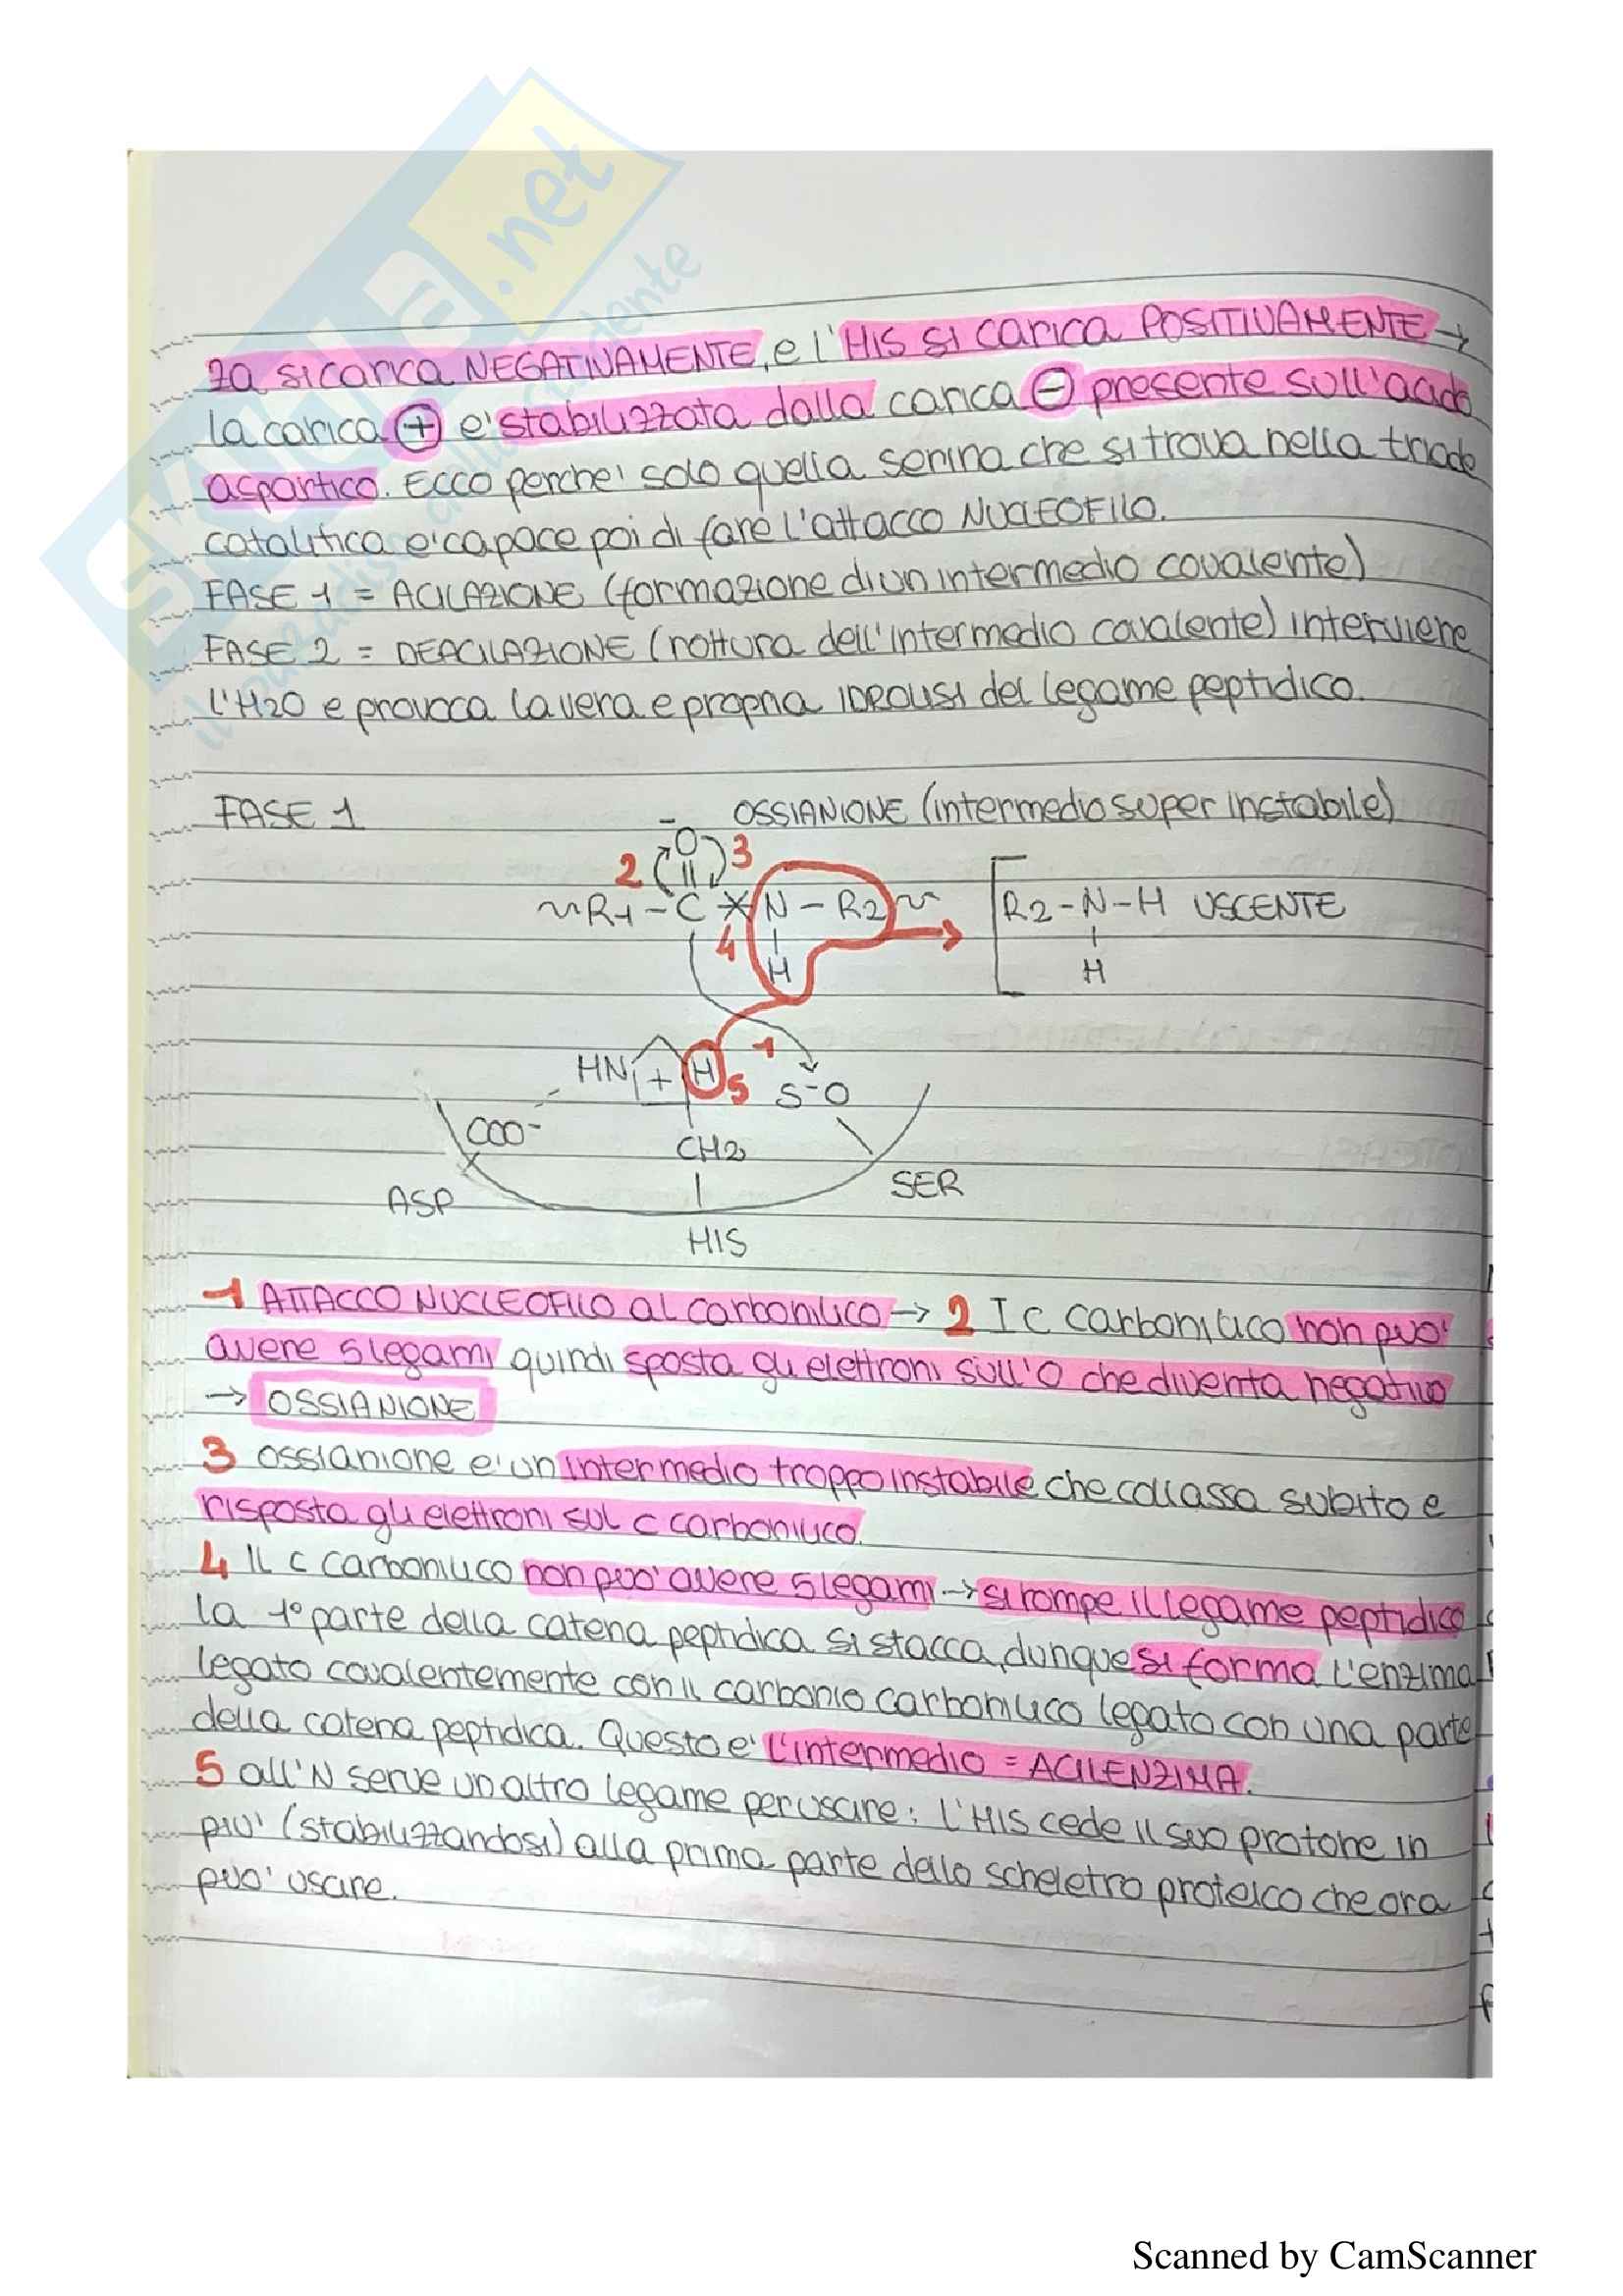 za si carica NEGATIVAMENTE, e l'HIS si carica POSITIVAMENTE →
la carica + e' stabilizzata dalla carica - presente sull'acido
aspartico. Ecco perche' solo quella serina che si trova nella triade
catalitica e' capace poi di fare l'attacco NUCLEOFILO.
FASE 1 = ACILAZIONE (formazione di un intermedio covalente)
FASE 2 = DEACILAZIONE (rottura dell'intermedio covalente) interviene
l'H2O e provoca la vera e propria IDROLISI del legame peptidico.
FASE 1 OSSIANIONE (intermedio super instabile)
- O
2 3
R1 - C N - R2 R2 - N - H USCENTE
4 H H
HN + H 5 1 S - O
COO-
CH2
ASP SER
HIS
1 ATTACCO NUCLEOFILO al carbonilico → 2 I C carbonilico non puo'
avere 5 legami quindi sposta gli elettroni sull'O che diventa negativo
→ OSSIANIONE
3 ossianione e' un intermedio troppo instabile che collassa subito e
risposta gli elettroni sul C carbonilico.
4 Il C carbonilico non puo' avere 5 legami → si rompe il legame peptidico
la 1° parte della catena peptidica si stacca, dunque si forma l'enzima
legato covalentemente con il carbonio carbonilico legato con una parte
della catena peptidica. Questo e' l'intermedio = ACILENZIMA.
5 all'N serve un altro legame per uscire: l'HIS cede il suo protone in
piu' (stabilizzandosi) alla prima parte dello scheletro proteico che ora
puo' uscire.
SKUOLA.net
il paradiso dello studente
Scanned by CamScanner